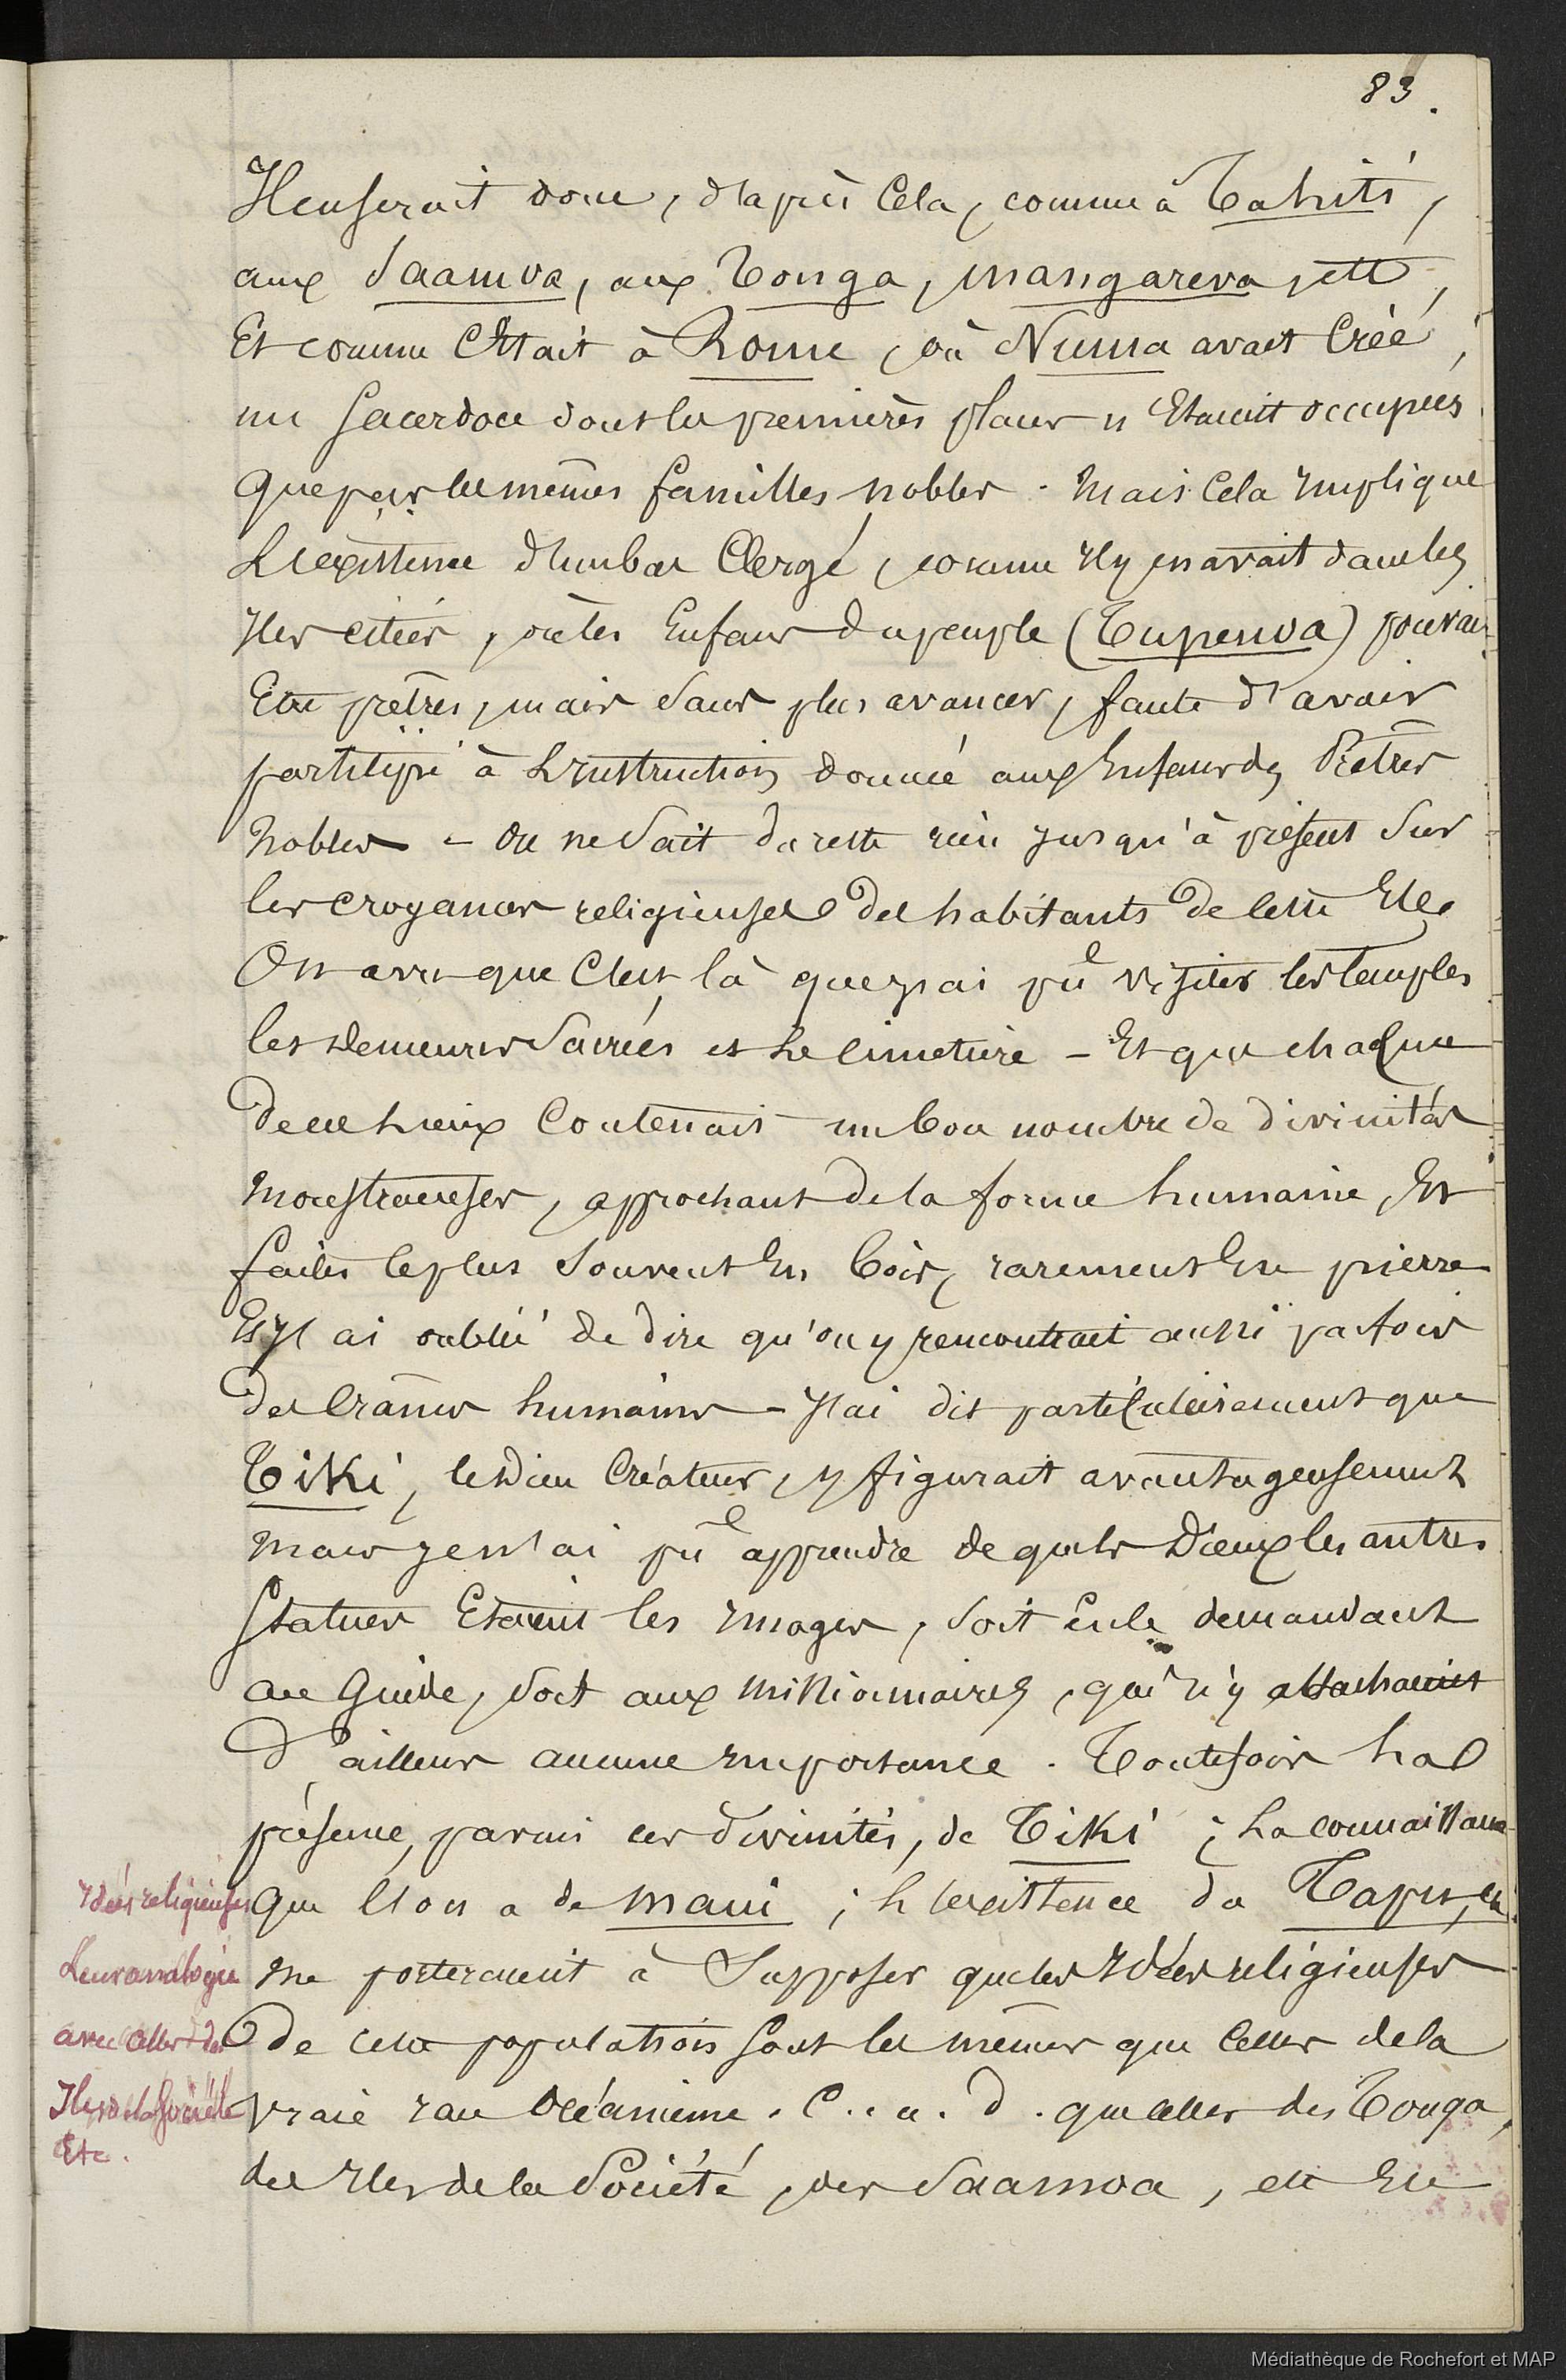 83.
Il en serait donc, d'après Cela, comme à Tahiti,
aux Saamoa, aux Tonga, Mangareva, ett,
Et comme C'était à Rome, où Numa avait Créé,
un Sacerdoce dont les premières places n'Etaient occupées
que par les mêmes familles nobles. Mais Cela Implique
L'existence d'un bas Clergé, comme Il y en avait dans les
Iles citées, où les Enfans du peuple (Tupenoa) pouvai
Etre prêtres, mais Sans plus avancer, faute d'avoir
participé à L'Instruction donnée aux Enfans des Prêtres
Nobles - On ne Sait du reste rien Jusqu'à présent Sur
les croyances religieuses des habitants de Cette Ile.
On a vu que C'est là que J'ai pû visiter les Temples
les demeures Sacrées et Le Cimetière - Et que chaque
de ces Lieux Contenait un bon nombre de divinités
Monstrueuses, approchant de la forme humaine, Et
faites le plus Souvent En bois, rarement En pierre
Et J'ai oublié de dire qu'on y rencontrait aussi parfois
des Crânes humains - J'ai dit particulièrement que
Tiki, le Dieu Créateur, y figurait avantageusement
Mais Je n'ai pû apprendre de quels Dieux les autres
Statues Etaient les Images, Soit En le demandant
au Guide, Soit aux Missionnaires, qui n'y attachaient
d'ailleurs aucune Importance. Toutefois La
présence, parmi ces divinités, de Tiki ; La connaissance
Que L'on a de Maui ; L'existence du Tapu, etc.
me porteraient à Supposer que les Idées religieuses
de cette population Sont les mêmes que Celles de la
vraie race Océanienne. C.. a. d. que celles des Tonga,
des Iles de la Société, des Saamoa, ett En
Idées religieuses
Leur analogie
avec celles des
Iles de la Société
Etc.
Médiathèque de Rochefort et MAP